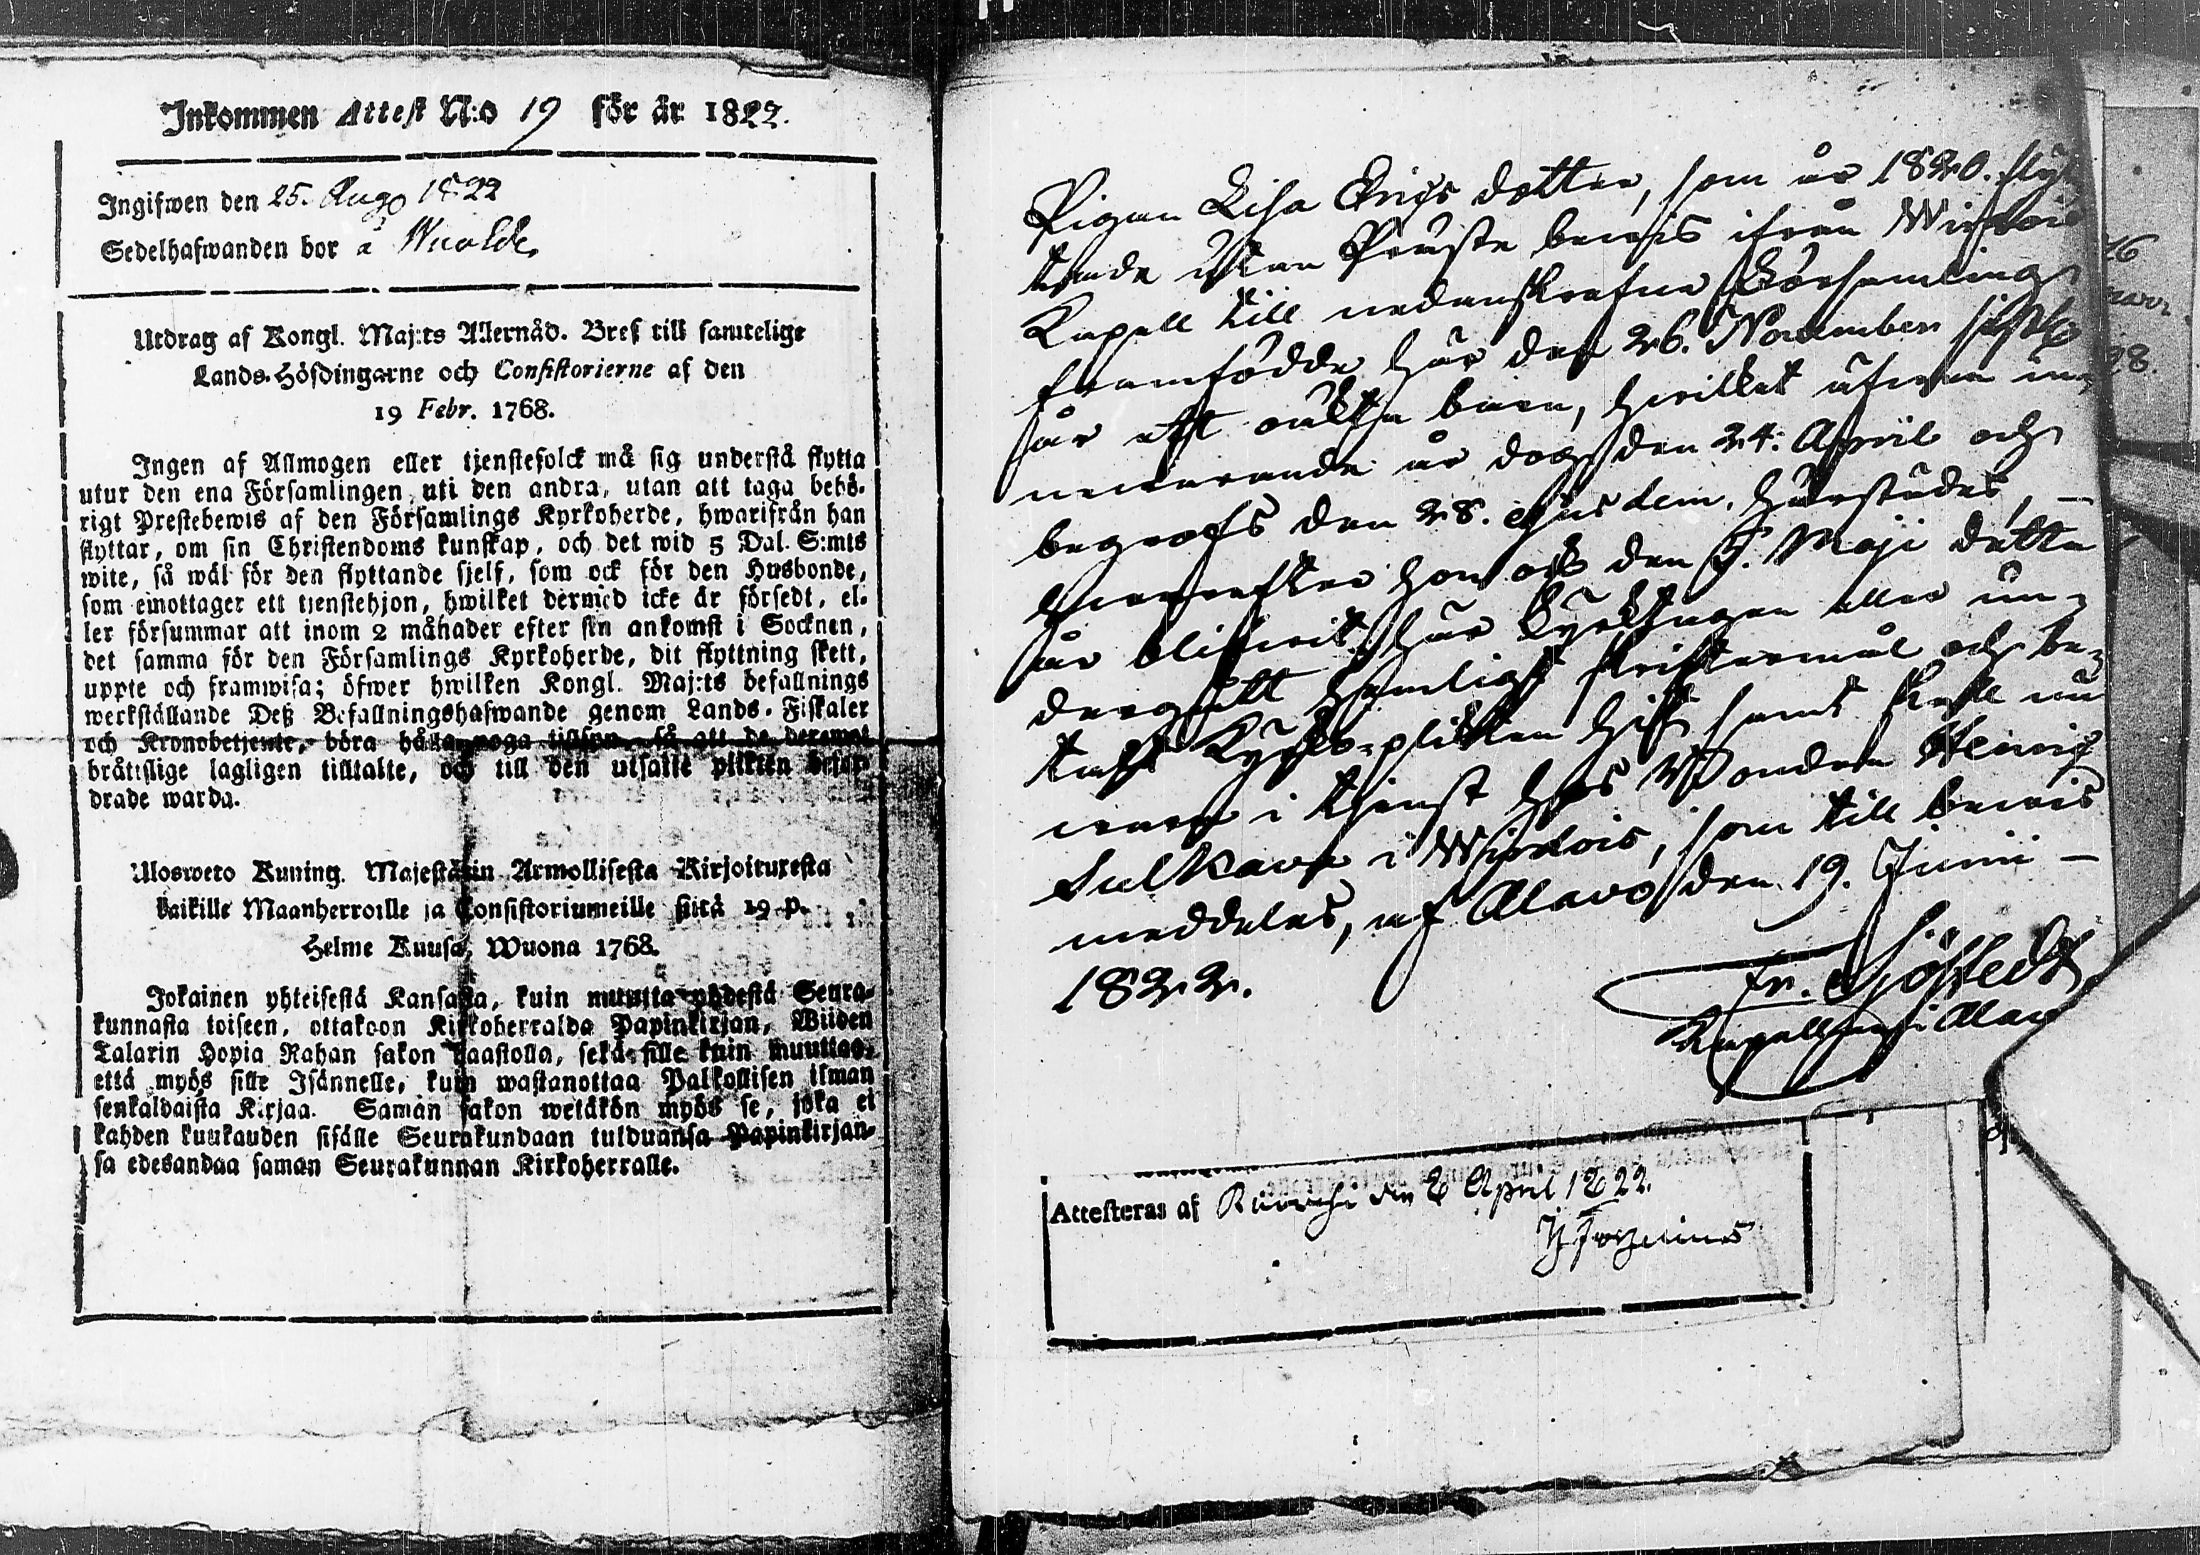 Inkommen Attest N:o 19 för år 1822.
Ingifwen den 25. Aug. 1822
Sedelhafwanden bor å
Utdrag af Kongl. Maj:ts Allernåd. Bref till samtelige
Lands-Höfdingarne och Consistorierne af den
19 Febr. 1768.
Ingen af Allmogen eller tjenstefolck må sig understå flytta
utur den ena Församlingen uti den andra, utan att taga behö-
rigt Prestebewis af den Församlings Kyrkoherde, hwarifrån han
flyttar, om sin Christendoms kunskap, och det wid 5 Dal. S:mts
wite, så wäl för den flyttande sjelf, som ock för den Husbonde,
som emottager ett tjenstehjon, hwilket dermed icke är försedt, el-
ler försummar att inom 2 månader efter sin ankomst i Socknen,
det samma för den Församlings Kyrkoherde, dit flyttning skett,
uppte och framwisa; öfwer hwilken Kongl. Maj:ts befallnings
werkställande Deß Befallningshafwande genom Lands-Fiskaler
och Kronobetjente, böra hålla noga tillsyn, så att de deremot
bråttslige lagligen tilltalte, och till den utsatte plikten befor-
drade warda.
Uloswето Kuning. Majestätin Armollisesta Kirjoituxesta
kaikille Maanherroille ja Consistoriumeille siitä 19 p.
Helme Kuusa, Wuona 1768.
Jokainen yhteisestä Kansasta, kuin muutta yhdestä Seura-
kunnasta toiseen, ottakoon Kirkoherralda Papinkirjan, Wiiden
Talarin Hopia Rahan sakon haastolla, sekä sille kuin muuttaa,
että myös sille Isännelle, kuin wastanottaa Palkollisen ilman
senkaldaista Kirjaa. Saman sakon wetäkön myös se, joka ei
kahden kuukauden sisälle Seurakundaan tulduansa Papinkirjan-
sa edesandaa saman Seurakunnan Kirkoherralle.
Pigan Lisa Erics dotter, som år 1820. flyt-
tande utan Präste bewis ifrån Wirdois
Kapell till nedanskrefne Församling
framfödde här den 26. November sistl.
år ett oäkta barn, hwilket äfwen in-
newarande år dog den 24. April och
begrofs den 28. ejusdem. härstädes, –
hwarefter hon ock den 5. Maji detta
år blifwit här Kyrktagen eller un-
dergått hemligt skriftermål och be-
talt Kyrko-plikten hit samt skall nu
wara i tjenst hos Bonden Henric
Sulkava i Wirdois, som till bewis
meddelas, af Alavo den 19. Junii –
1822.
Fr. Sjöstedt
Kapellan i Alavo
Attesteras af Kuorehi den 8 April 1822.
16
28.